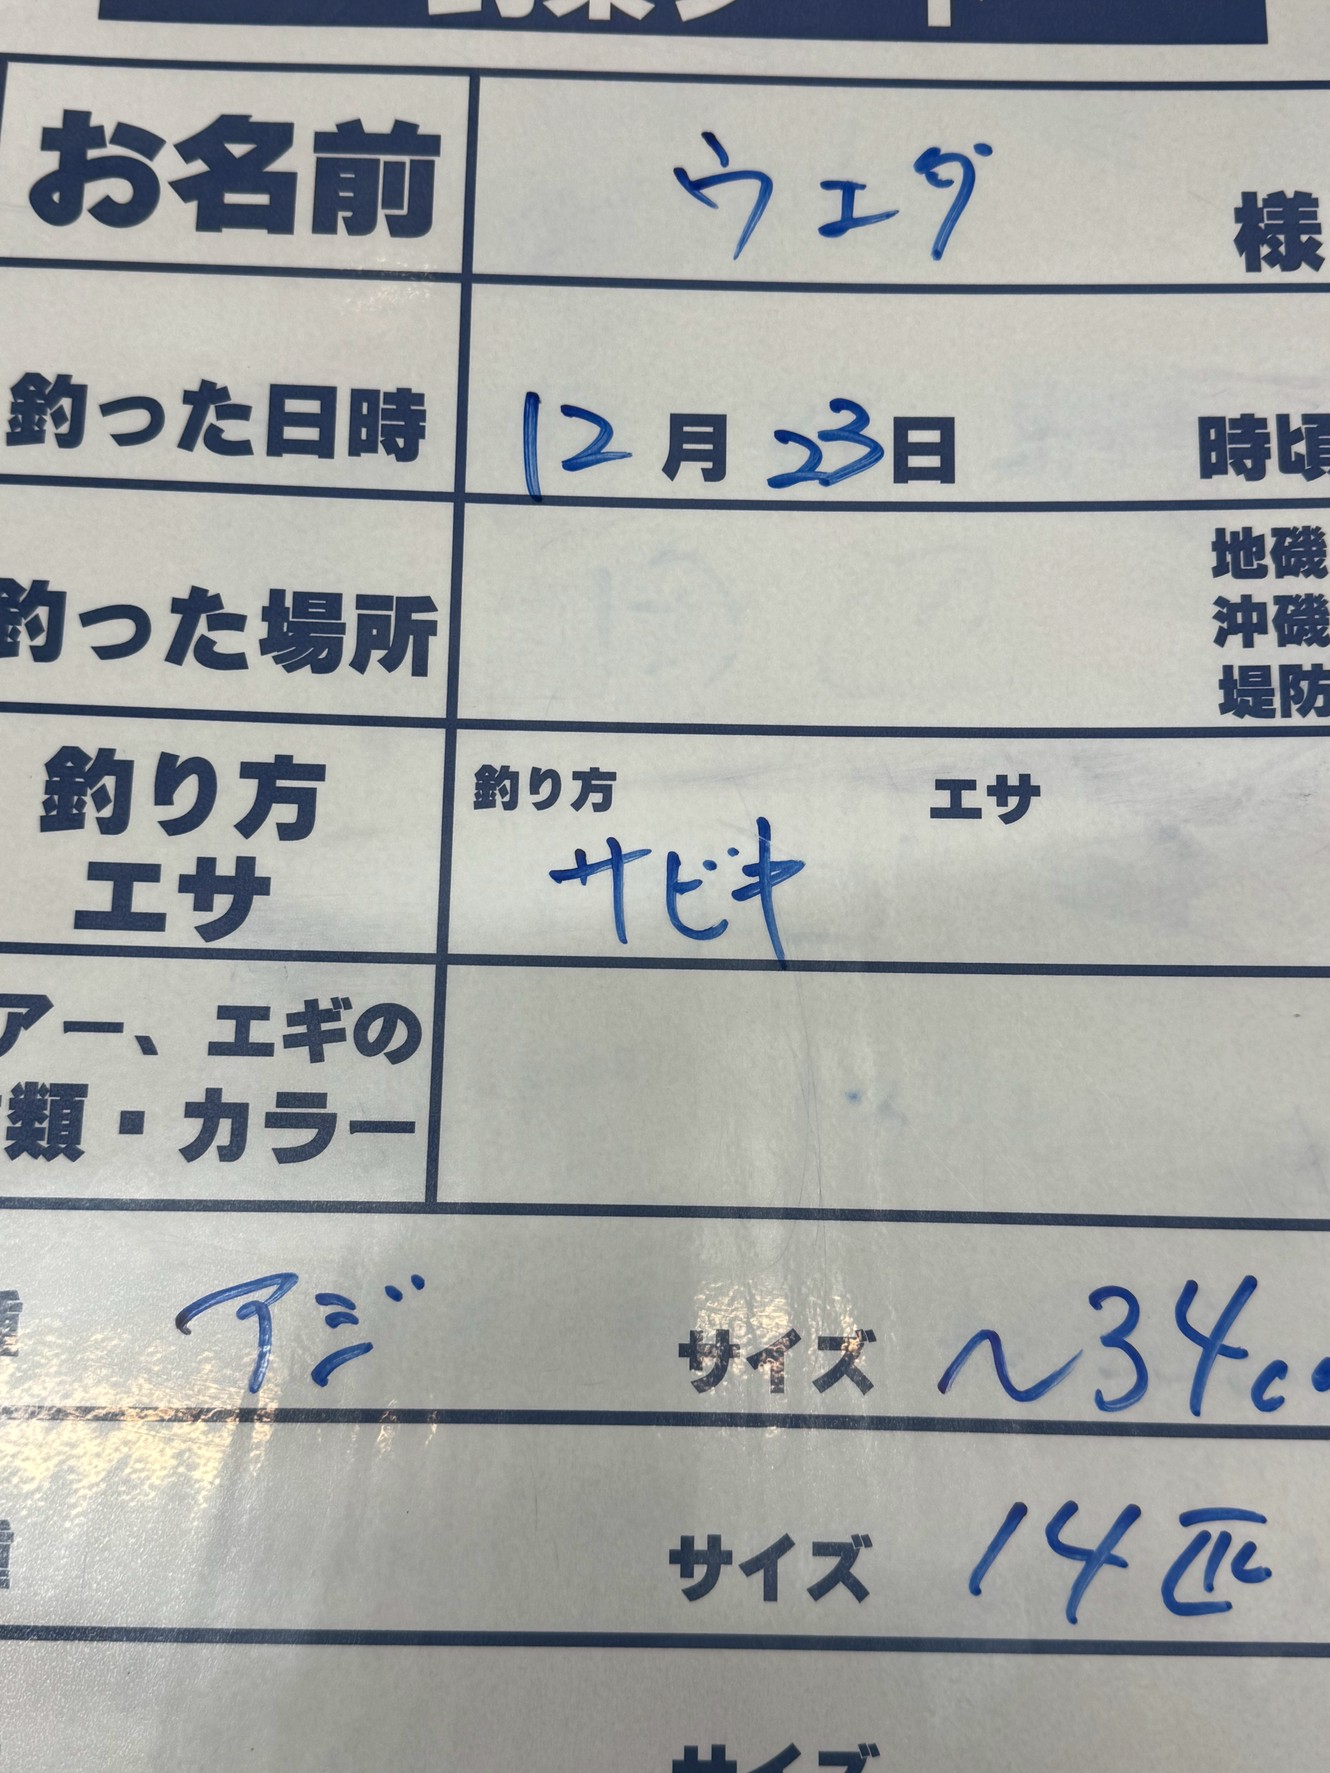 お名前 ウエダ 様
釣った日時 12月23日 時頃
釣った場所
地磯
沖磯
堤防
釣り方 エサ
釣り方
エサ
サビキ
アー、エギの
類・カラー
アジ サイズ ~34c
サイズ 14匹
サイズ